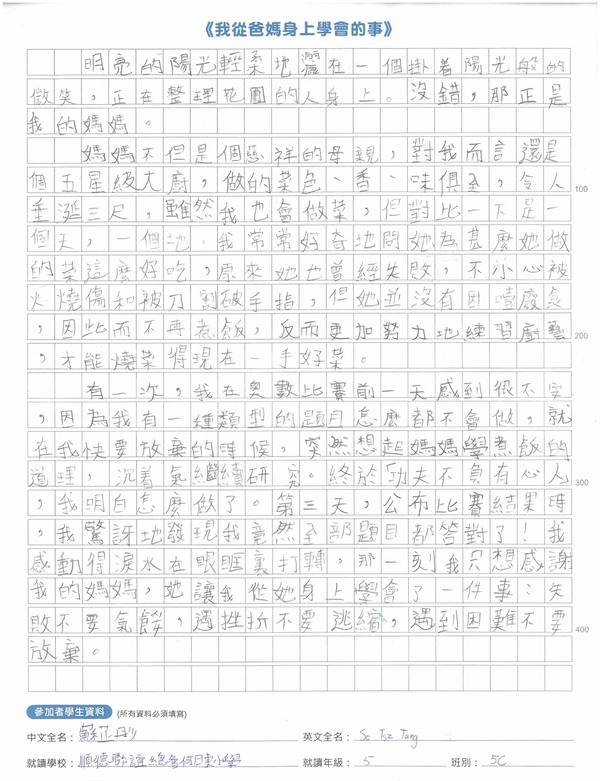 《我從爸媽身上學會的事》
明亮的陽光輕柔地灑在一個掛着陽光般的
微笑，正在整理花園的人身上。沒錯，那正是
我的媽媽。
媽媽不但是個慈祥的母親，對我而言還是
個五星級大廚，做的菜色、香、味俱全，令人
100
垂涎三尺，雖然我也會做菜，但對比一下是一
個天，一個地。我常常好奇地問她為甚麼她做
的菜這麼好吃，原來她也曾經失敗，不小心被
火燒傷和被刀割破手指，但她並沒有因噎廢食
，因此而不再煮飯，反而更加努力地練習廚藝
200
，才能燒菜得現在一手好菜。
有一次，我在奧數比賽前一天感到很不安
，因為我有一種類型的題目怎麼都不會做，就
在我快要放棄的時候，突然想起媽媽學煮飯的
道理，沉着氣繼續研究。終於功夫不負有心人
300
，我明白怎麼做了。第三天，公布比賽結果時
，我驚訝地發現我竟然全部題目都答對了！我
感動得淚水在眼眶裏打轉，那一刻我只想感謝
我的媽媽，她讓我從她身上學會了一件事：失
敗不要氣餒，遇挫折不要逃縮，遇到困難不要
400
放棄。
參加者學生資料 (所有資料必須填寫)
中文全名： 蘇
英文全名： So Tsz
就讀學校： 順德聯誼總會何日東小學
就讀年級： 5
班別： 5C